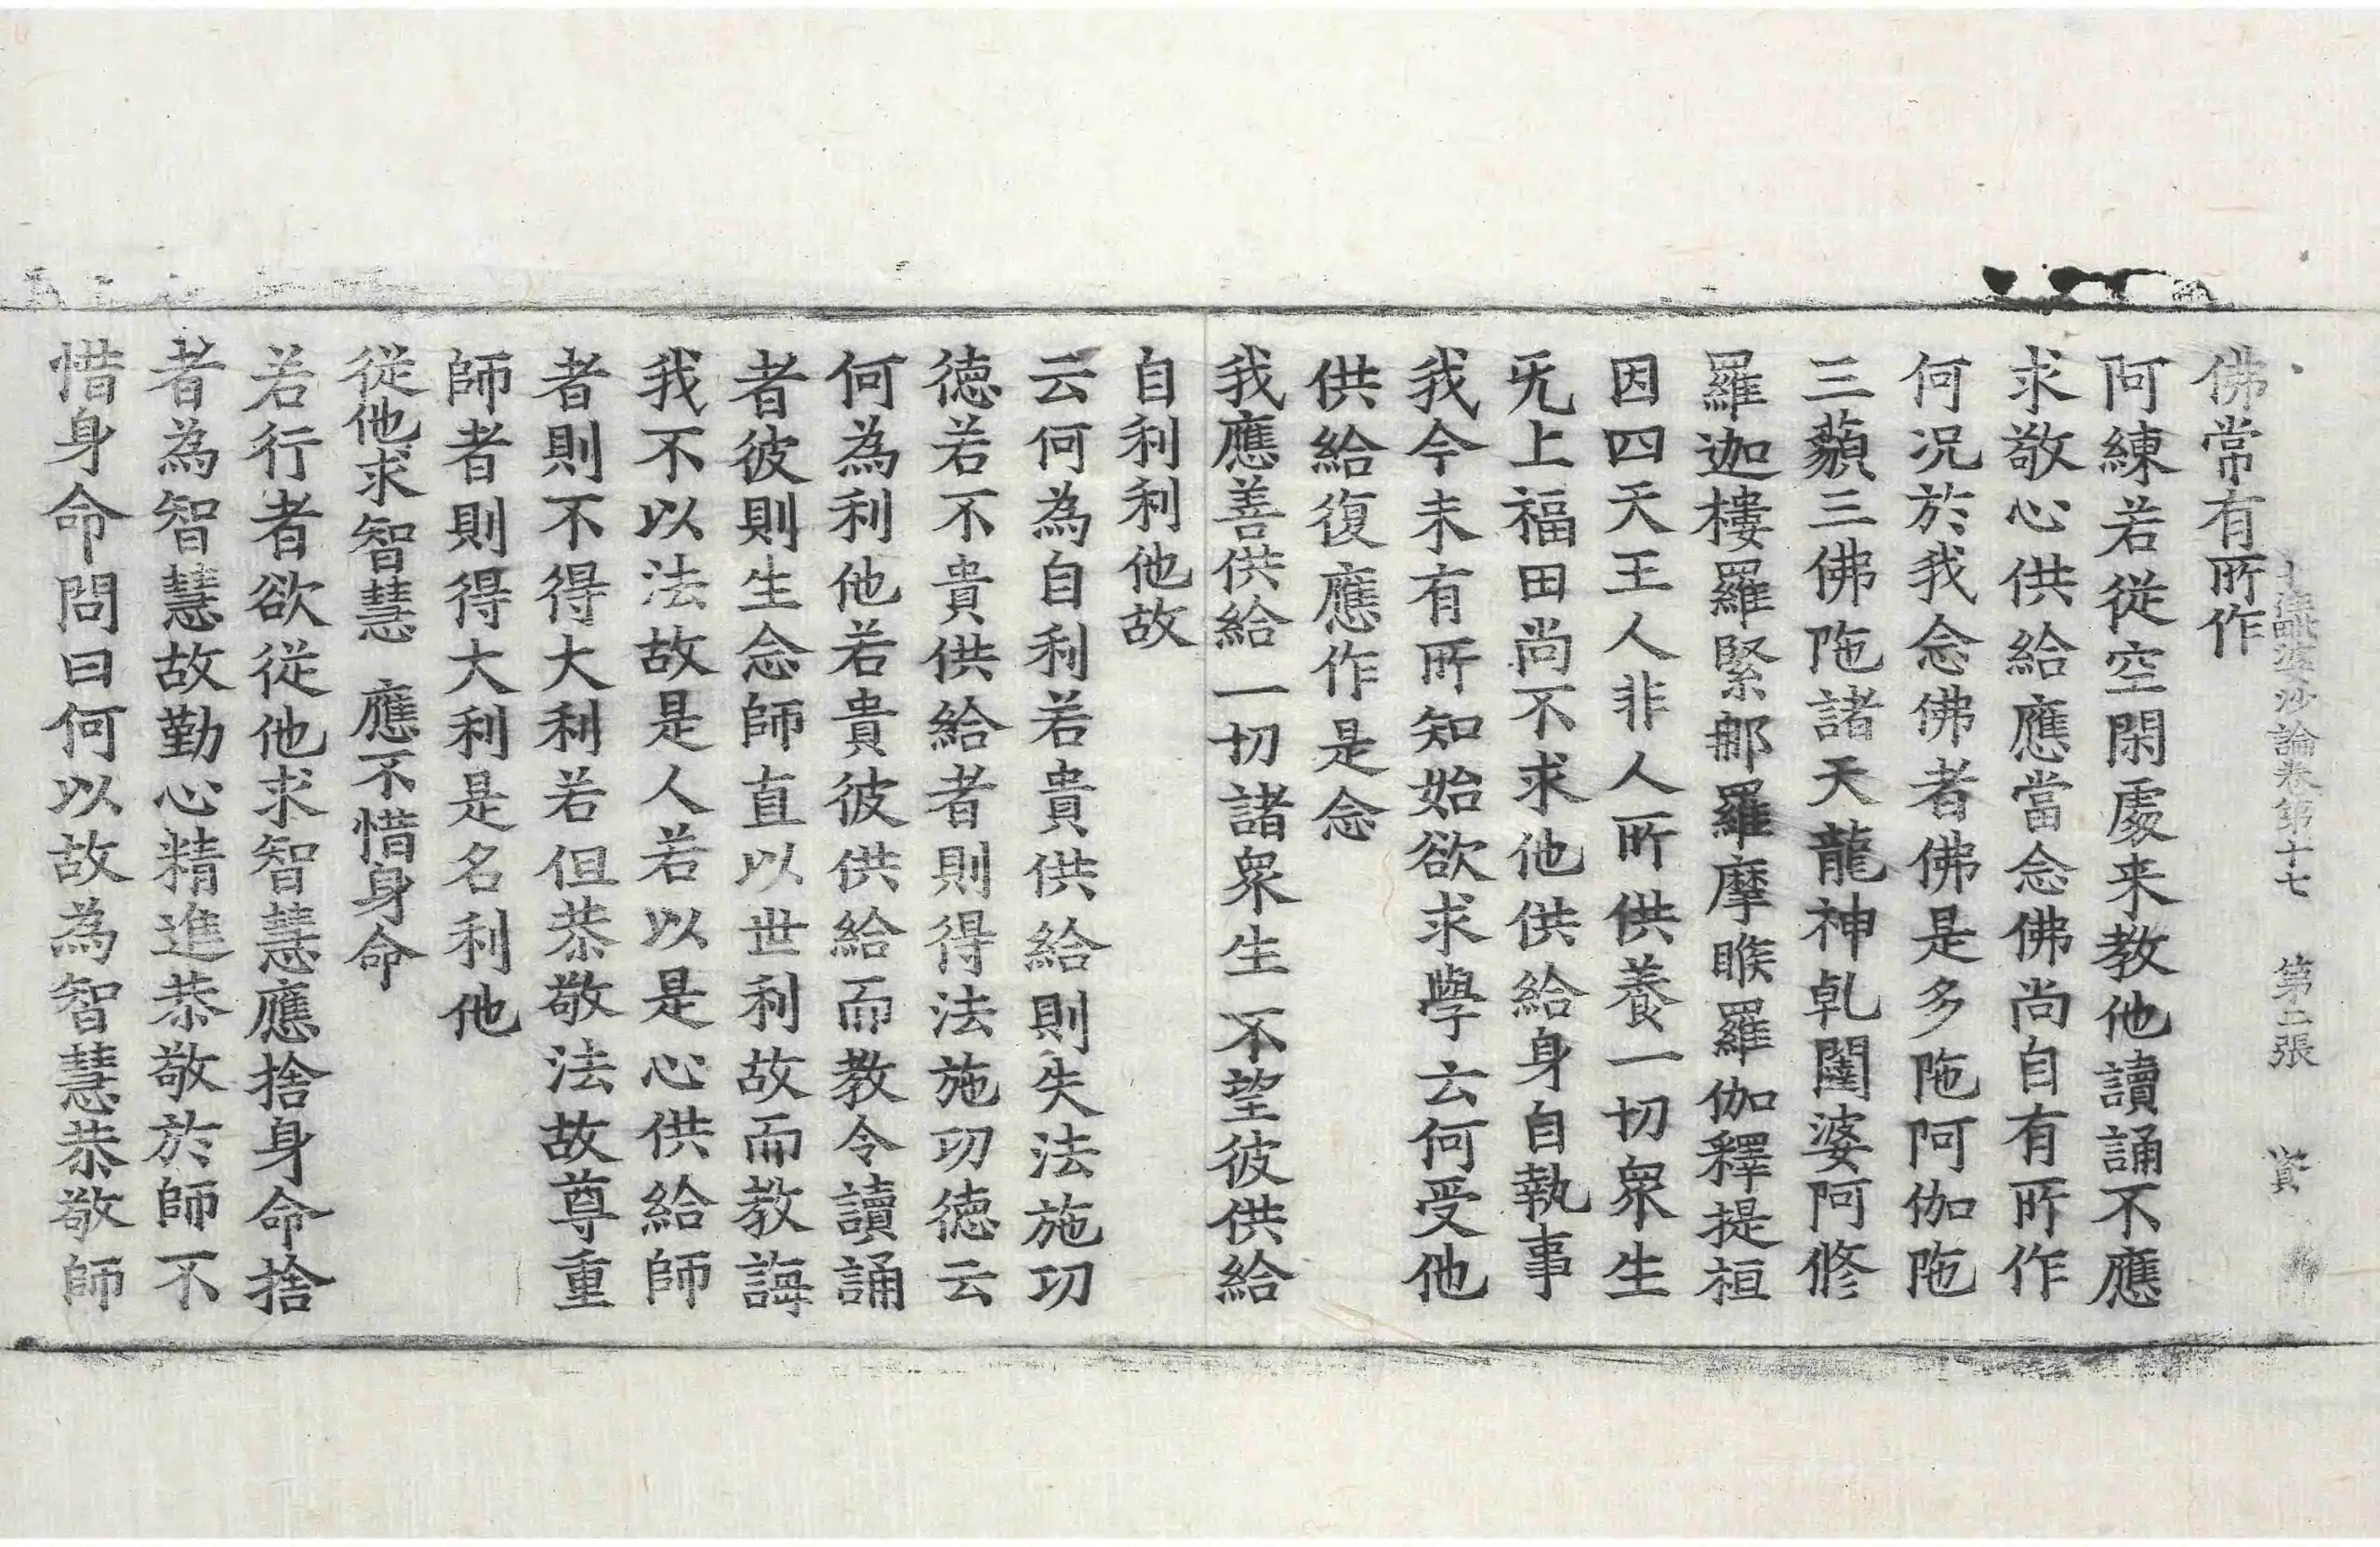 十住毗婆沙論卷第十七　第二張　賢
佛常有所作
阿練若從空閑處来教他讀誦不應
求敬心供給應當念佛尚自有所作
何况於我念佛者佛是多陁阿伽陁
三藐三佛陁諸天龍神乹闥婆阿修
羅迦樓羅緊那羅摩睺羅伽釋提桓
因四天王人非人所供養一切衆生
旡上福田尚不求他供給身自執事
我今未有所知始欲求學云何受他
供給復應作是念
我應善供給一切諸衆生不望彼供給
自利利他故
云何為自利若貴供給則失法施功
德若不貴供給者則得法施功德云
何為利他若貴彼供給而教令讀誦
者彼則生念師直以世利故而教誨
我不以法故是人若以是心供給師
者則不得大利若但恭敬法故尊重
師者則得大利是名利他
從他求智慧　應不惜身命
若行者欲從他求智慧應捨身命捨
者為智慧故勤心精進恭敬於師不
惜身命問曰何以故為智慧恭敬師